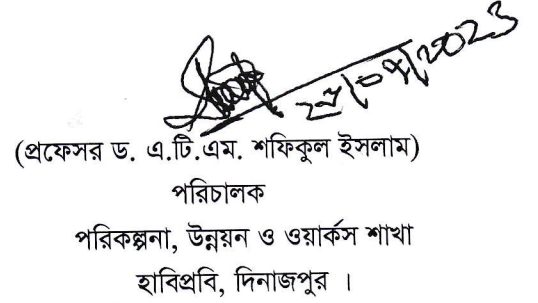 (প্রফেসর ড. এ.টি.এম. শফিকুল ইসলাম)
পরিচালক
পরিকল্পনা, উন্নয়ন ও ওয়ার্কস শাখা
হাবিপ্রবি, দিনাজপুর ।